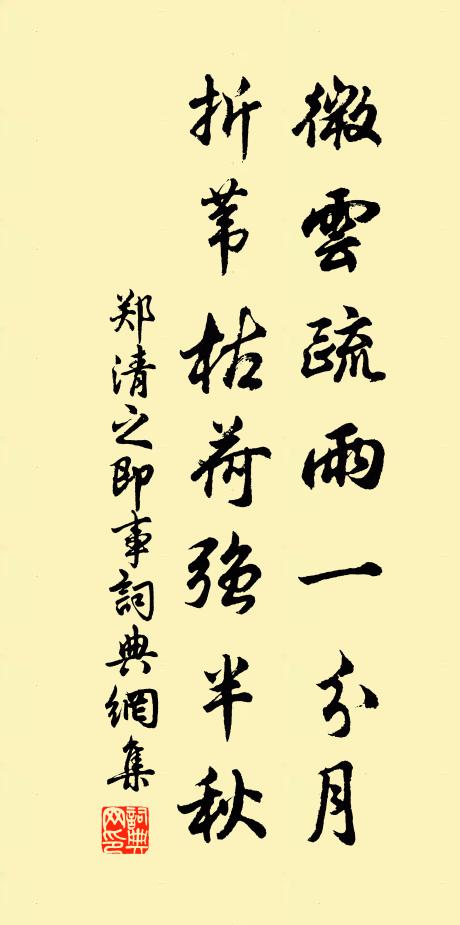 微雲疏雨一分月
折苇枯荷強半秋
郑清之即事詞典網集
詞典网印